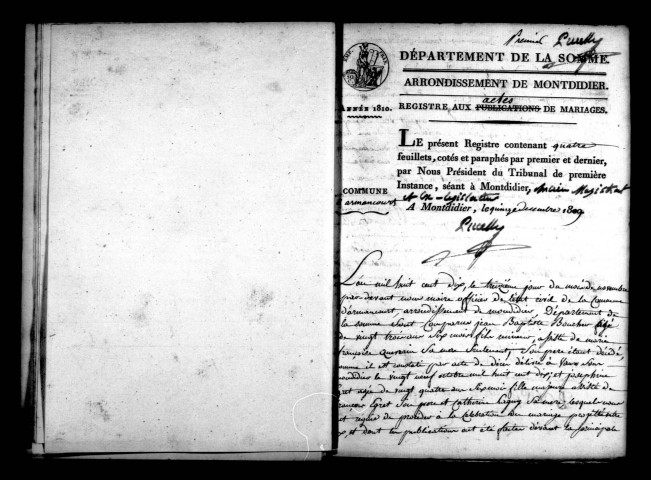 Premier Pucelle
DÉPARTEMENT DE LA SOMME.
ARRONDISSEMENT DE MONTDIDIER.
ANNÉE 1810.
actes
REGISTRE AUX PUBLICATIONS DE MARIAGES.
LE présent Registre contenant quatre
feuillets, cotés et paraphés par premier et dernier,
par Nous Président du Tribunal de première
Instance, séant à Montdidier, ancien Magistrat
et Ex-Législateur
COMMUNE
d'armancourt
A Montdidier, le quinze décembre 1809
Pucelle
L'an mil huit cent dix, le treizieme jour du mois de novembre
par devant nous maire officier de l'état civil de la Commune
d'armancourt, arrondissement de mondidier, Département de
la somme sont comparus jean Baptiste Boucher agé
de vingt trois ans six mois fils mineur, assisté de marie
francoise sa mere seulement, son pere étant décédé,
comme il est constaté par acte de décès délivré à
mondidier le vingt neuf octobre mil huit cent dix; et josephine
agée de vingt quatre ans six mois fille majeure assistée de
francois son pere et catherine sa mere, lesquels nous
ont requis de procéder à la célébration du mariage projetté entre
eux, et dont les publications ont été faites devant la principale